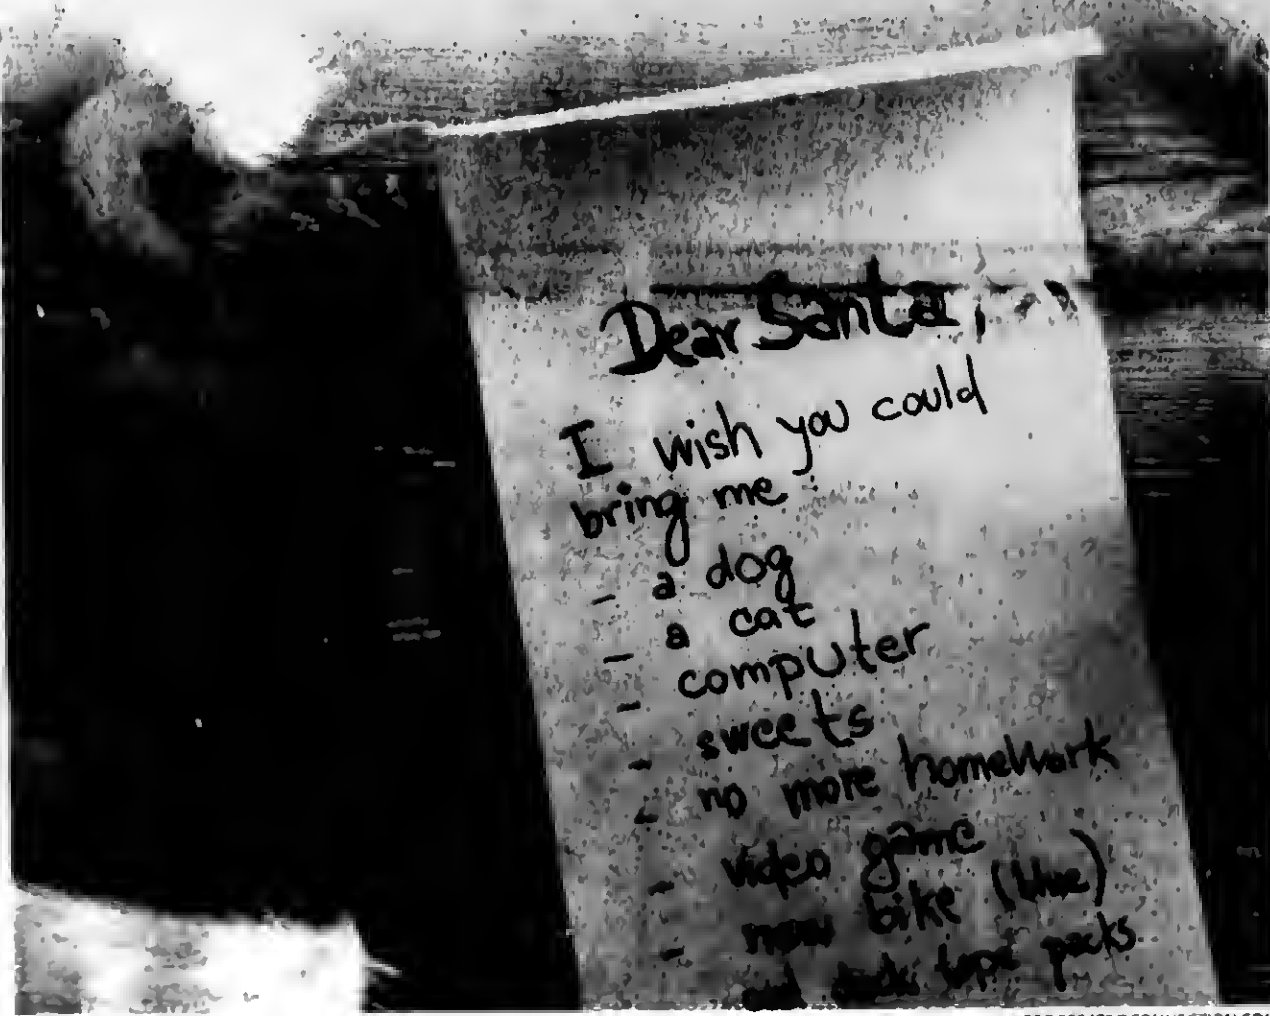 Dear Santa,
I wish you could
bring me :
- a dog
- a cat
- computer
- sweets
- no more homework
- video game
- new bike (blue)